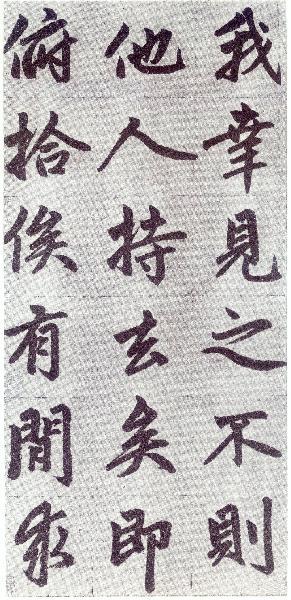 我幸見之不則
他人持去矣即
俯拾俟有閒求